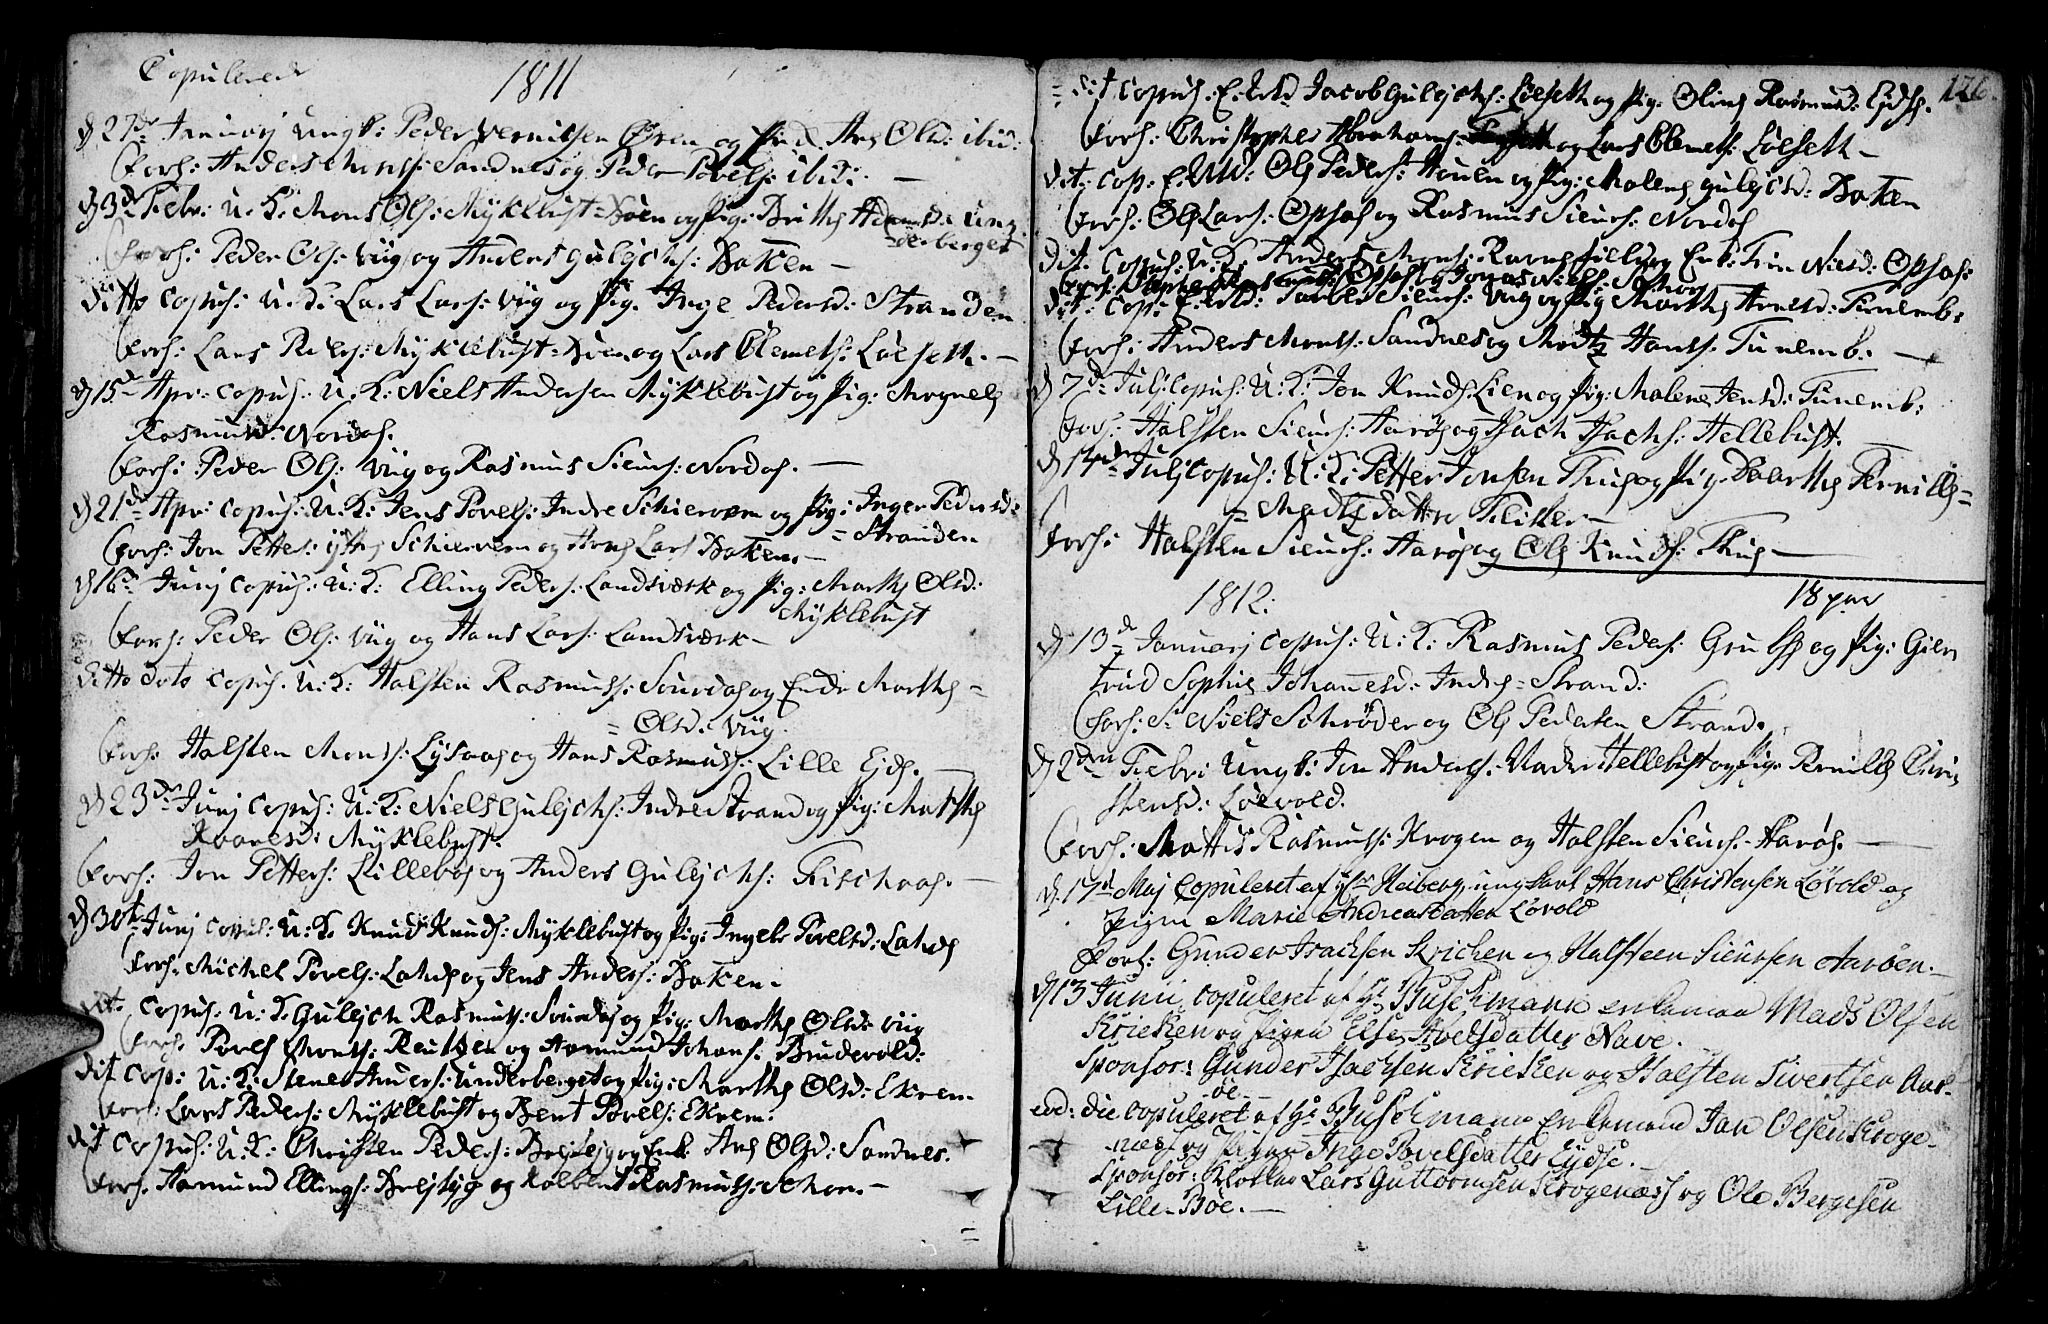 Copulerede 1811
d 27de Januarj Ungk: Peder Berentsen Øren og Pied. Ane Olsd: ibid:
Forl: Anders Mons: Sandnes og Peder Povels: ibid: —
d 3de Febr: U: K: Mons Ols: Myklebust = Bøen og Pig: Britthe Adamsd: Un=
=derberget
Forl: Peder Ols: Viig og Anders Gulichs: Bakken —
Ditto Copul: U: K: Lars Lars: Viig og Pig. Inge Pedersd: Stranden
Forl: Lars Peders: Myklebust = Bøen og Lars Clemets: Løeseth. —
d 15de Apr: Copul: U: K: Niels Andersen Myklebust og Pig: Magnele
Rasmusd: Nordas.
Forl: Peder Ols: Viig og Rasmus Siurs: Nordas. —
d 21de Apr: Copul: U: K: Jens Povels: Indre Schiervem og Pig: Inger Pedersd:
= Stranden
Forl: Jon Petters: Yttre Schiervem og Hans Lars Bakken. —
d 16de Junj Copul: U: K: Elling Peders: Landsværk og Pig: Marthe Olsd:
Myklebust
Forl: Peder Ols: Viig og Hans Lars: Landsværk —
Ditto Dato Copul. U: K: Halsten Rasmus: Sourdas og Enke Marthe =
= Olsd: Viig.
Forl: Halsten Mons: Lysaas og Hans Rasmus: Lille Ejde. —
d 23de Junj Copul: U: K: Niels Gulichs: Indre Strand og Pig: Marthe
Knudsd: Myklebust.
Forl: Jon Petters: Lillebøe og Anders Gulichs: Fischaas. —
d 30te Junj Copul: U: K. Knud Knuds: Myklebust og Pig: Ingebr Povelsd: Lande
Forl: Michel Povels: Lande og Jens Anders: Bakken. —
dit: Copul: U: K Gulich Rasmus: Sourdas og Pig: Marthe Olsd: Viig
Forl: Povel Mons: Reutzen og Aamund Johans: Brudevold:
Dit Cop: U: K: Stener Anders: Underberget og Pig: Marthe Olsd: Ekrem.
Forl: Lars Peders: Myklebust og Bent Povels: Ekrem.
dit Copul: U: K: Christen Peders: Brejsteg og Enk. Ane Olsd: Sandnes.
Forl. Aamund Ellings: Brejsteg og Kolbent Rasmus: Schor. —
126.
= dit Copul: E: Md Jacob Gulichs: Løeseth og Pig: Oline Rasmusd: Ejde.
Forl: Christopher Abrahams: og Lars Clemets: Løeseth —
Dit: Cop: E: Md: Ole Peders: Houen og Pig: Malene Gulichsd: Bakken
Forl: Ole Lars: Opsal og Rasmus Siurs: Nordas
Dit: Copul: U: K. Anders Mons: og Enk: Nielsd: Opsal:
Forl: Opsal og Jonas Niels: Schor
Dit: Cop: E: Md: Siurs: Viig og Pig Marthe Arnesd: Tunemb:
Forl: Anders Mons: Sandnes og Modtz Hans: Tunemb: —
d 7de Julj Copul: U: K: Jon Knuds. Lien og Pig: Malene Jensd: Tunemb:
Forl: Halsten Siurs: Aarøe og Isach Isachs: Hellebust. —
d 14de Julj Copul: U: K: Petter Jonsen Thue og Pig. Baarthe Pernille =
= Madtzdatter Flisker —
Forl: Halsten Siurs: Aarøe og Ole Knuds: Thue —
1812: 18 par
d 13de Januarj Copul: U: K: Rasmus Peders: Grubse og Pig: Gier
trud Sophie Johannesd: Indre = Strand:
Forl: Sr Niels Schrøder og Ole Pedersen Strand.
d 2den Febr: Ungk: Jon Anders: Nedre Hellebust og Pig. Pernille Chri
stensd: Løevold.
Forl: Mattis Rasmus: Krogen og Halsten Siurs: Aarøe. —
d. 17de Maj Copuleret af Hr Heiberg ungkarl Hans Christensen Løvold og
Pigen Marie Andreasdatter Løvold
Forl: Gunder Isachsen Kricken og Halsteen Siursen Aarøen. —
d 13 Junii copuleret af Hr Buschmann enkeman Mads Olsen
Kricken og Pigen Else Avelsdatter Nave. —
Sponsor: Gunder Isachsen Kricken og Halsten Sivertsen Aar-
øe. —
eod: die copuleret af Hr Buschmann Enkemand Jan Olsen Kroge-
næs og Pigen Inge Povelsdatter Eidse. —
Sponsor: Klokker Lars Guttormsen Krogenæss og Ole Bergesen
Lille-Bøe. —